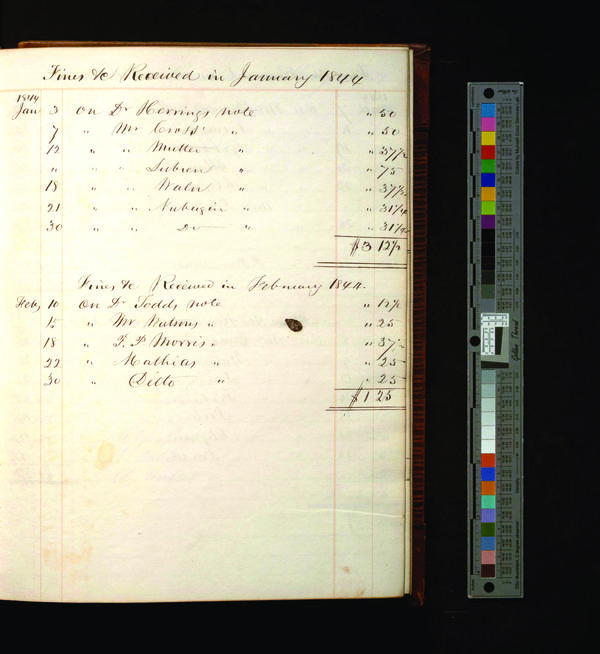 Fines &c Received in January 1844
1844
Jan 3 on Dr Herrings note " 50
7 " Mr Cross' " " 50
12 " " Mutter " " 37 1/2
" " " " " 75
18 " " Waln " " 37 1/2
21 " " " " 31 1/4
30 " " Do " 31 1/4
$3 12 1/2
Fines &c Received in February 1844
Feb, 10 on Dr Todds note " 12 1/2
15 " Mr Watsons " " 25
18 " T. P Morris " " 37 1/2
22 " Mathias " " 25
30 " Ditto " " 25
$1 25
Golden Thread